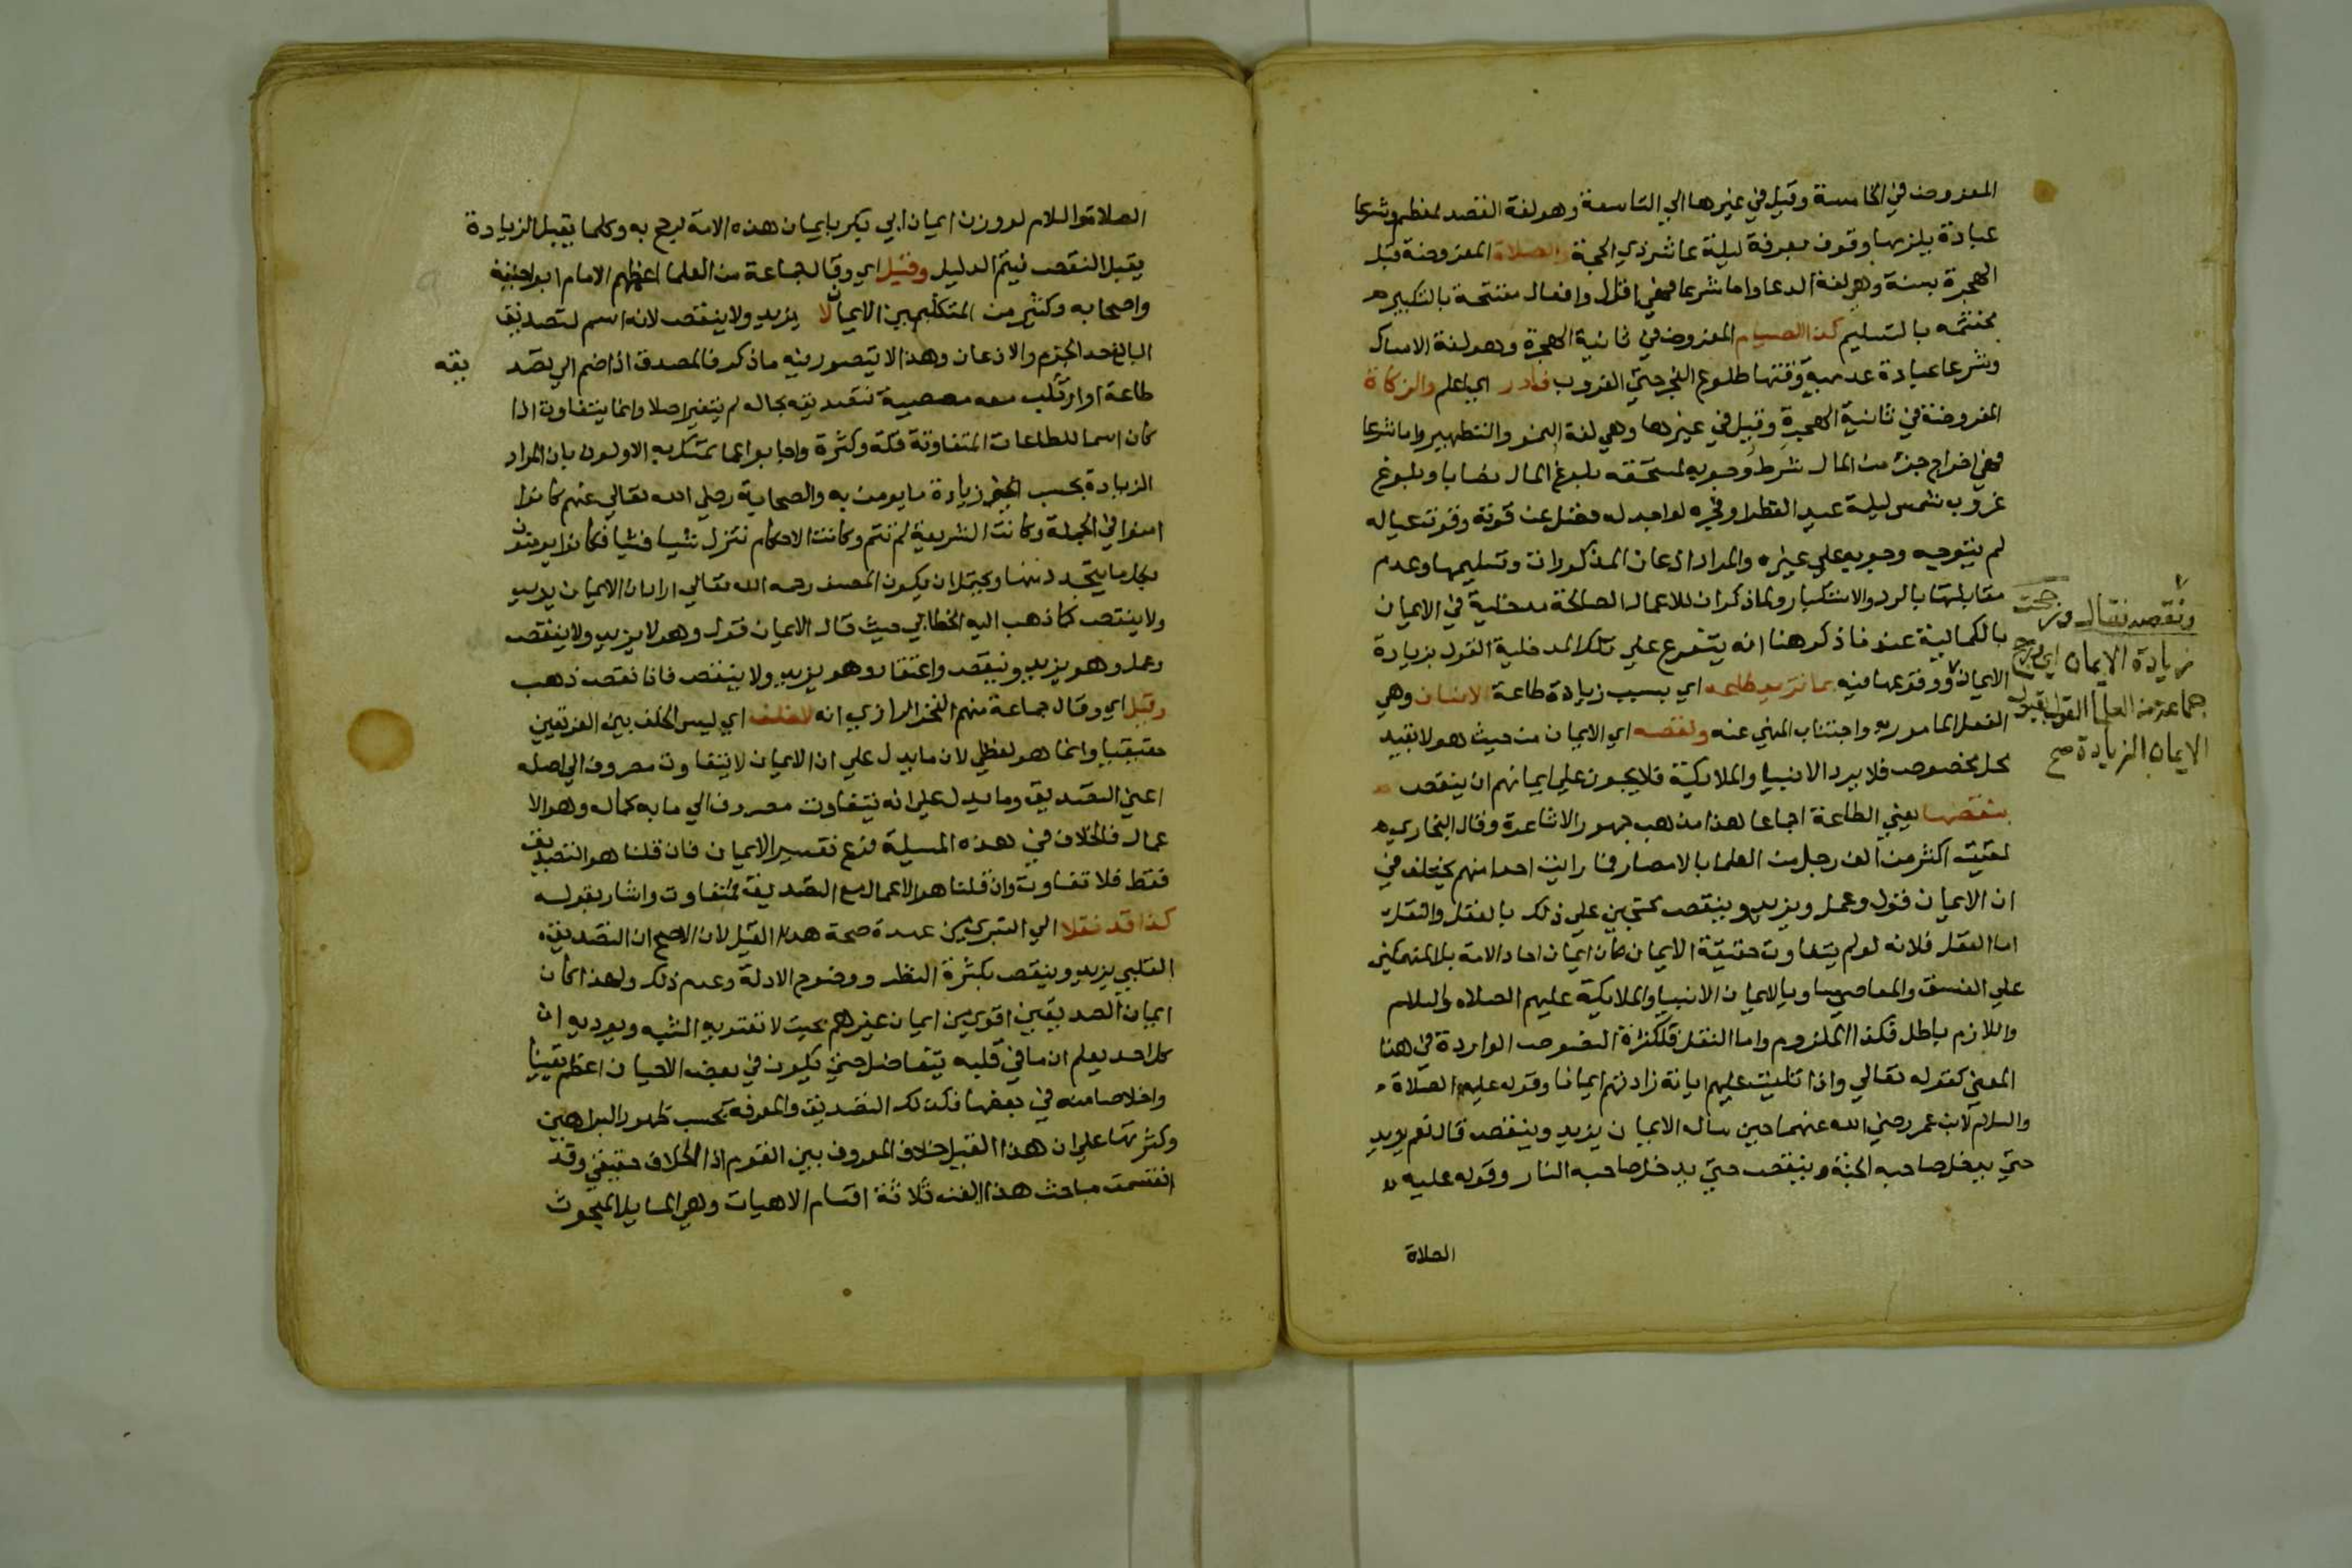 المفروض في الخامسة وقيل في غيرها الي التاسعة وهو لغة القصد لمعظم وشرعا
عبادة يلزمها وقوف بعرفة ليلة عاشر ذي الحجة والصلاة المفروضة قبل
الهجرة بسنة وهي لغة الدعا واما شرعا فهي اقوال وافعال مفتتحة بالتكبير
مختتمه بالتسليم كذا الصيام المفروض في ثانية الهجرة وهو لغة الامساك
وشرعا عبادة عدمية وقتها طلوع الفجر حتي الغروب فادر اي اعلم والزكاة
المفروضة في ثانية الهجرة وقيل في غيرها وهي لغة النمو والتطهير واما شرعا
فهي اخراج جزء من المال شرط وجوبه لمستحقه بلوغ المال نصابا وبلوغ
غروب شمس ليلة عيد الفطر او فجره لواجد له فضل عن قوته وقوت عياله
لم يتوجه وجوبه علي غيره والمراد اذعان المذكورات وتسليمها وعدم
مقابلتها بالرد والاستكبار ولما ذكر ان للاعمال الصالحة مدخلية في الايمان
بالكمالية عندنا ذكر هنا انه يتفرع علي تلك المدخلية القول بزيادة
الايمان ووقوعها فيه بما تزيد طاعه اي بسبب زيادة طاعة الانسان وهي
الفعل المامور به واجتناب المنهي عنه ونقصه اي الايمان من حيث هو لا بقيد
محل مخصوص فلا يرد الانبيا والملايكة فلا يجوز علي ايمانهم ان ينقص
بنقصها يعني الطاعة اجماعا هذا مذهب جمهور الاشاعرة وقال البخاري
لقيت اكثر من الف رجل من العلما بالامصار فما رايت احدا منهم يختلف في
ان الايمان قول وعمل ويزيد وينقص محتجين علي ذلك بالعقل والنقل
اما العقل فلانه لو لم يتفاوت حقيقة الايمان لكان ايمان احاد الامة بل المنهمكين
علي الفسق والمعاصي مساويا لايمان الانبيا والملايكة عليهم الصلاه والسلام
واللازم باطل فكذا الملزوم واما النقل فلكثرة النصوص الواردة في هذا
المعني كقوله تعالي واذا تليت عليهم اياته زادتهم ايمانا وقوله عليه الصلاة
والسلام لابن عمر رضي الله عنهما حين ساله الايمان يزيد وينقص قال نعم يزيد
حتي يدخل صاحبه الجنة وينقص حتي يدخل صاحبه النار وقوله عليه
الصلاة
ونقصه فقال ورجحت
زيادة الايمان اي ورجح
جماعة من العلما القول بقبول
الايمان الزيادة صح
الصلاة والسلام لو وزن ايمان ابي بكر بايمان هذه الامة لرجح به وكلما يقبل الزيادة
يقبل النقص فيتم الدليل وقيل اي وقال جماعة من العلما اعظمهم الامام ابو حنيفة
واصحابه وكثير من المتكلمين الايمان لا يزيد ولا ينقص لانه اسم لتصديق
البالغ حد الجزم والاذعان وهذا لا يتصور فيه ما ذكر فالمصدق اذا ضم الي تصد يقه
طاعة او ارتكب معه معصية فتصديقه بحاله لم يتغير اصلا وانما يتفاوت اذا
كان اسما للطاعات المتفاوتة قلة وكثرة واجابوا عما تمسك به الاولون بان المراد
الزيادة بحسب زيادة ما يومن به والصحابة رضي الله تعالي عنهم كانوا
امنوا في الجملة وكانت الشريعة لم تتم وكانت الاحكام تنزل شيا فشيا فكانوا يومنون
بكل ما يتجدد منها ويحتمل ان يكون المصنف رحمه الله تعالي اراد ان الايمان يزيد
ولا ينقص كما ذهب اليه الخطابي حيث قال الايمان قول وهو لا يزيد ولا ينقص
وعمل وهو يزيد وينقص واعتقاد وهو يزيد ولا ينقص فاذا نقص ذهب
وقيل اي وقال جماعة منهم الفخر الرازي انه لا خلف اي ليس الخلف بين الفريقين
حقيقيا وانما هو لفظي لان ما يدل علي ان الايمان لا يتفاوت مصروف الي اصله
اعني التصديق وما يدل علي انه يتفاوت مصروف الي ما به كماله وهو الا
عمال فالخلاف في هذه المسيلة فرع تفسير الايمان فان قلنا هو التصديق
فقط فلا تفاوت وان قلنا هو الاعمال مع التصديق فمتفاوت واشار بقوله
كذا قد نقلا الي التبري من عهدة صحة هذا القيل لان الاصح ان التصديق
القلبي يزيد وينقص بكثرة النظر ووضوح الادلة وعدم ذلك ولهذا كان
ايمان الصديقين اقوي من ايمان غيرهم بحيث لا تعتريه الشبه ويويده ان
كل احد يعلم ان ما في قلبه يتفاضل حتي يكون في بعض الاحيان اعظم يقينا
واخلاصا منه في بعضها فكذلك التصديق والمعرفة بحسب ظهور البراهين
وكثرتها علي ان هذا القيل خلاف المعروف بين القوم اذ الخلاف حقيقي وقد
انقسمت مباحث هذا الفن ثلاثة اقسام الاهيات وهي المسايل المبحوث